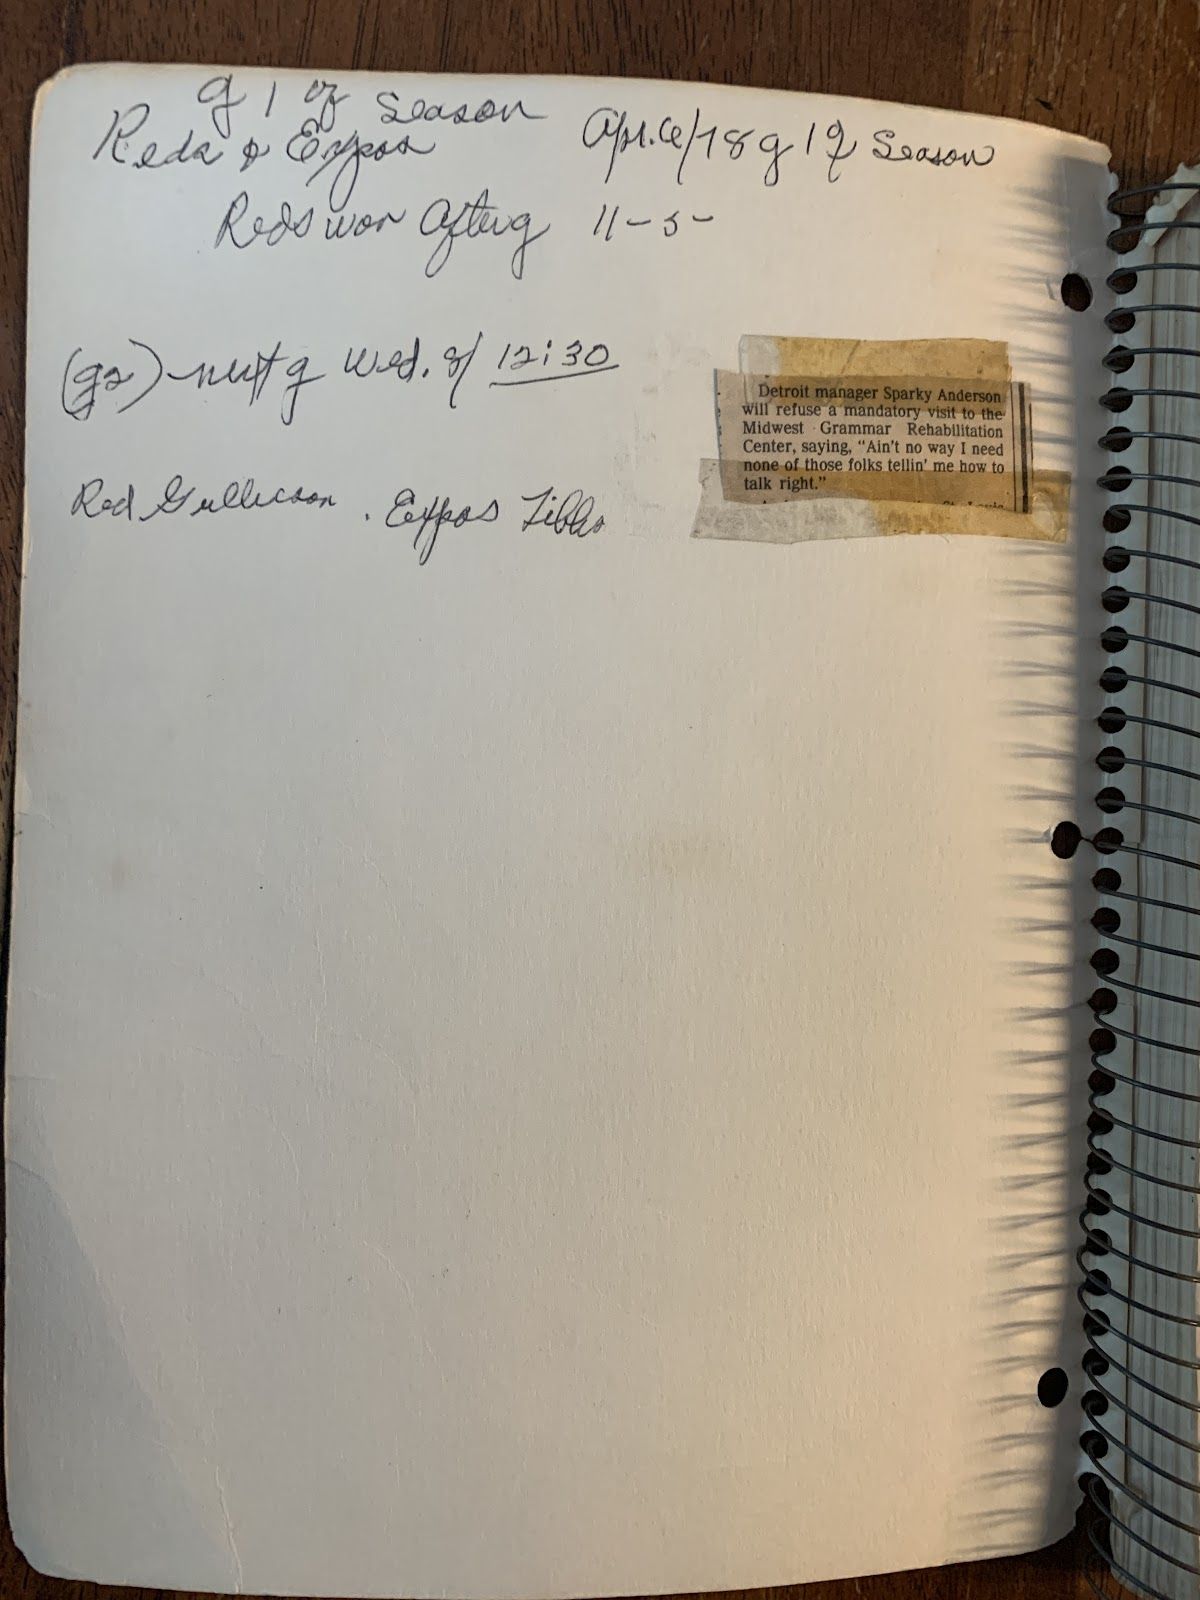 g 1 of Season
Reds & Expos Apr. 6/78 g 1 of Season
Reds won After g 11-5-
(g2) - next g Wed. 8/ 12:30
Red Gullicson . Expos Tibbs
Detroit manager Sparky Anderson
will refuse a mandatory visit to the
Midwest Grammar Rehabilitation
Center, saying, “Ain't no way I need
none of those folks tellin' me how to
talk right.”
St. Louis